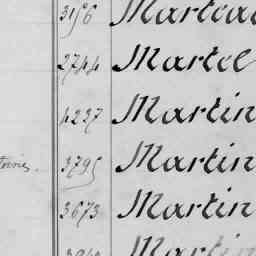 3156 Marteau
2744 Martel
4237 Martin
3795 Martin
3673 Martin
Martin